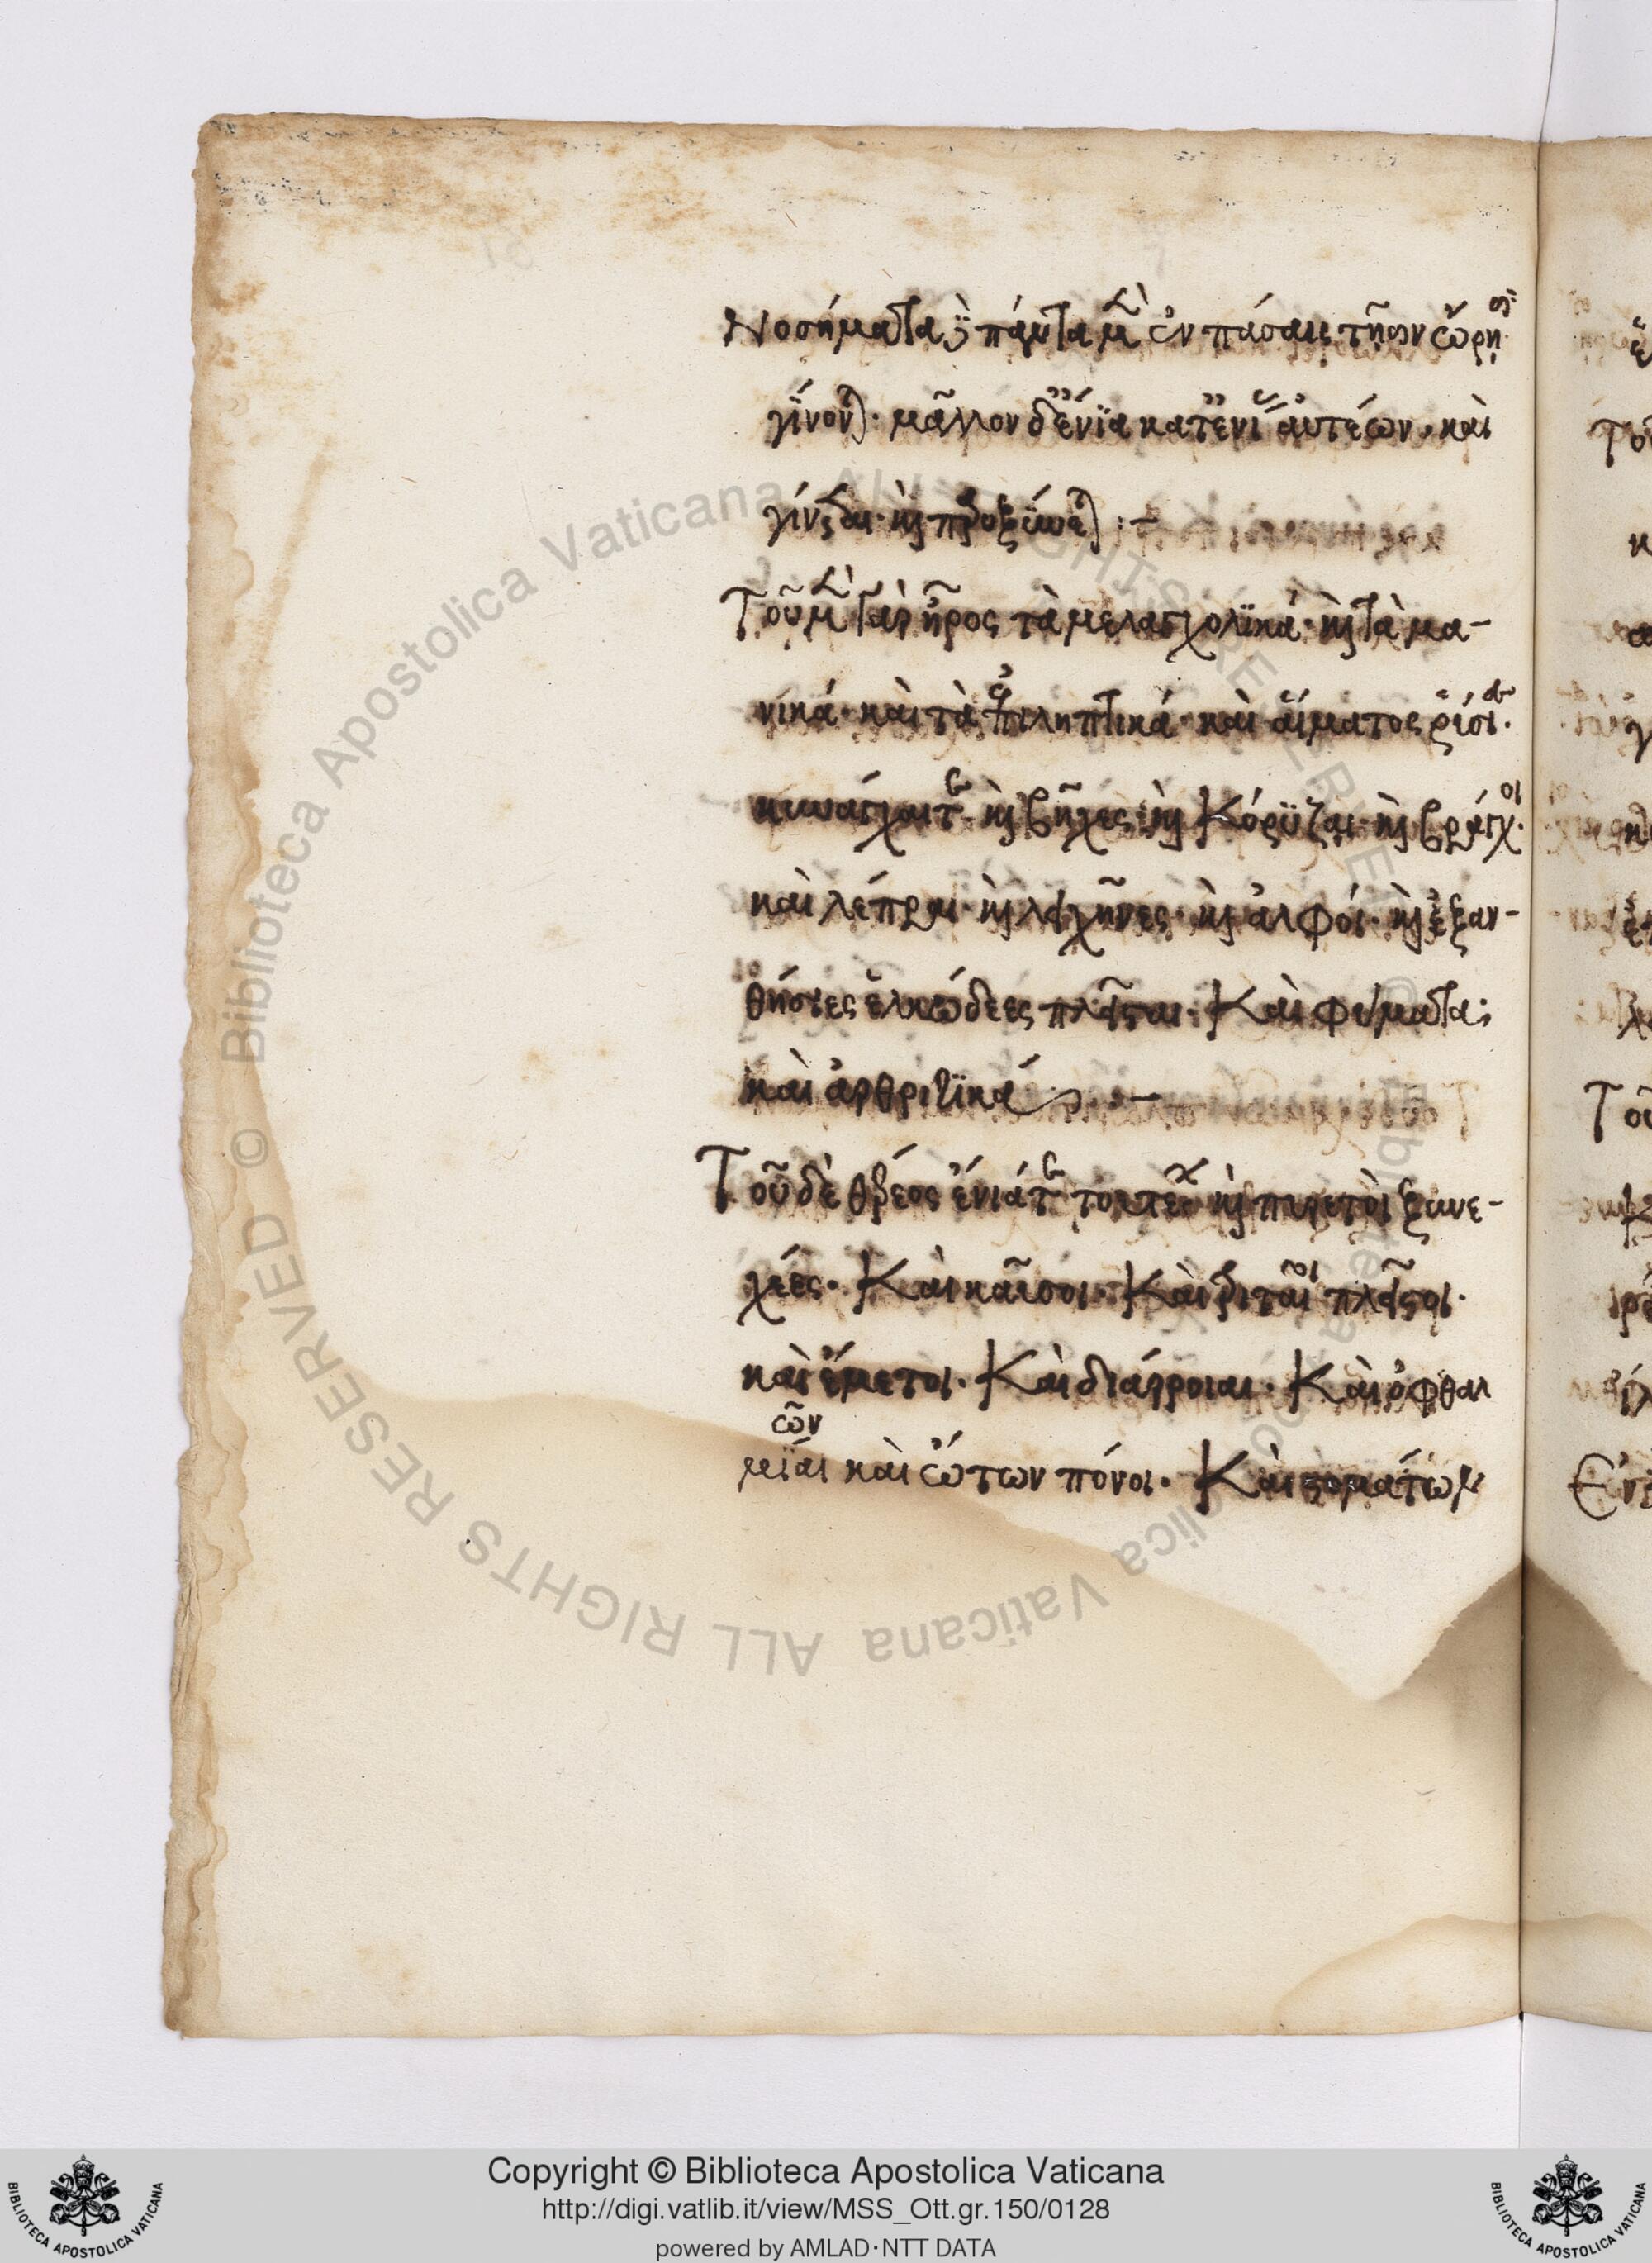 Νοσήματα δὲ πάντα μὲν ἐν πάσαισι τῇσιν ὥρῃσι
γίνονται· μᾶλλον δ' ἔνια κατ' ἐνίας αὐτέων· καὶ
γίνεσθαι· καὶ παροξύνεται :–
Τοῦ μὲν γὰρ ἦρος τὰ μελαγχολϊκά· καὶ τὰ μα-
νικά· καὶ τὰ ἐπιληπτικά· καὶ αἵματος ῥύσιες·
κυνάγχαι τε· καὶ βῆχες· καὶ Κόρϋζαι· καὶ βράγχοι·
καὶ λέπραι· καὶ λειχῆνες· καὶ ἀλφοί· καὶ ἐξαν-
θήσιες ἑλκώδεες πλεῖσται· Καὶ φύματα·
καὶ ἀρθριτϊκά :–
Τοῦ δὲ θέρεος ἔνιά τε τουτέων καὶ πυρετοὶ ξυνε-
χέες· Καὶ καῦσοι· Καὶ τριταῖοι πλεῖστοι·
καὶ ἔμετοι· Καὶ διάρροιαι· Καὶ ὀφθαλ
μίαι καὶ ὤτων πόνοι· Καὶ στομάτων
Copyright © Biblioteca Apostolica Vaticana
http://digi.vatlib.it/view/MSS_Ott.gr.150/0128
powered by AMLAD·NTT DATA
BIBLIOTECA APOSTOLICA VATICANA
BIBLIOTECA APOSTOLICA VATICANA
© Biblioteca Apostolica Vaticana ALL RIGHTS RESERVED
© Biblioteca Apostolica Vaticana ALL RIGHTS RESERVED